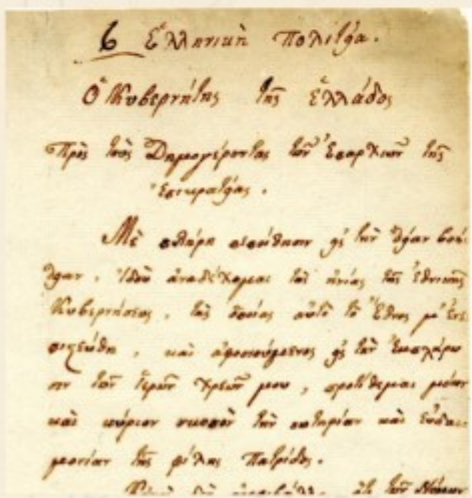 6 Ἑλληνικὴ Πολιτεία.
Ὁ Κυβερνήτης τῆς Ἑλλάδος
Πρὸς τοὺς Δημογέροντας τῶν Ἐπαρχιῶν τῆς
Ἐπικρατείας.
Μὲ πλήρη πεποίθησιν εἰς τὴν θείαν βοή
θειαν, ἰδοὺ ἀναδέχομαι τὰς ἡνίας τῆς ἐθνικῆς
Κυβερνήσεως, τὰς ὁποίας αὐτὸ τὸ Ἔθνος μ' ἐνε
πιστεύθη, καὶ ἀφοσιούμενος εἰς τὴν ἐκπλήρω
σιν τῶν ἱερῶν χρεῶν μου, προτίθεμαι μόνον
καὶ κύριον σκοπὸν τὴν σωτηρίαν καὶ εὐδαι
μονίαν τῆς φίλης Πατρίδος.